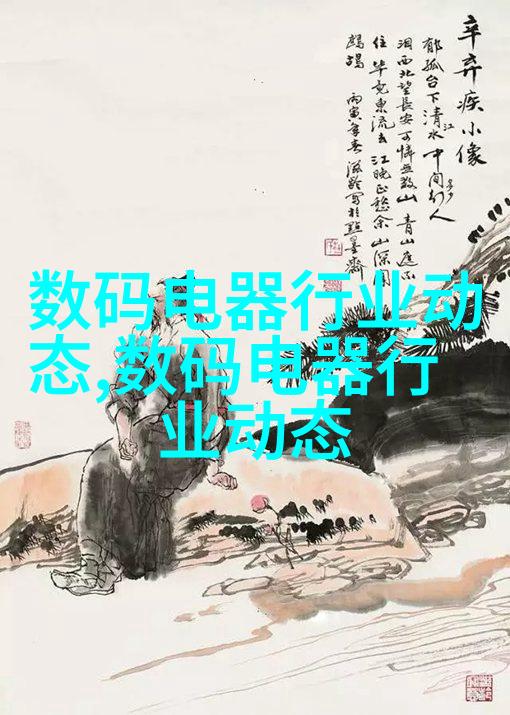 辛弃疾小像
郁孤台下清江水中间多少行人
泪西北望長安可憐無数山青山遮不
住毕竟東流去江晚正愁余山深闻
鹧鸪 丙寅年春滋齡写於點墨齋
数码电器行业动
态,数码电器行
业动态